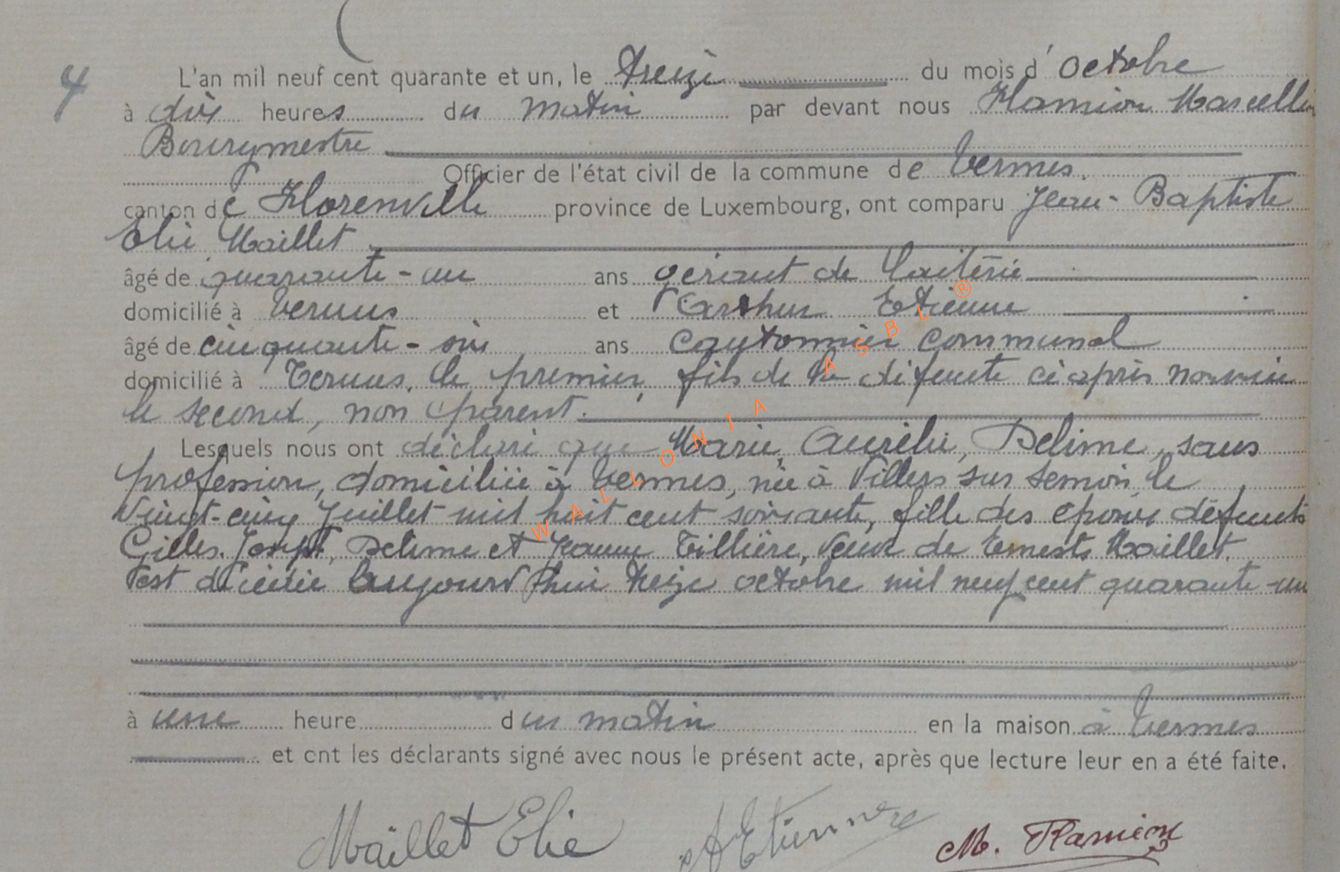 4
L'an mil neuf cent quarante et un, le treize du mois d'octobre
à dix heures du matin par devant nous Hamion Marcellin
Bourgmestre
Officier de l'état civil de la commune de Termes,
canton de Florenville province de Luxembourg, ont comparu Jean-Baptiste
Elie Maillet
âgé de quarante-un ans gérant de laiterie
domicilié à Termes et Arthur Etienne
âgé de cinquante-six ans cantonnier communal
domicilié à Termes, le premier, fils de la défunte ci après nommée
le second, non parent.
Lesquels nous ont déclaré que Marie, Aurélie, Delime, sans
profession, domiciliée à Termes, née à Villers sur Semois le
vingt-cinq Juillet mil huit cent soixante, fille des époux défunts
Gilles Joseph, Delime et Jeanne Tillière, veuve de Ernest Maillet
est décédée aujourd'hui treize octobre mil neuf cent quarante-un
à une heure du matin en la maison à Termes
et ont les déclarants signé avec nous le présent acte, après que lecture leur en a été faite.
Maillet Elie AEtienne M. Hamion
WALLONIA ASBL ®